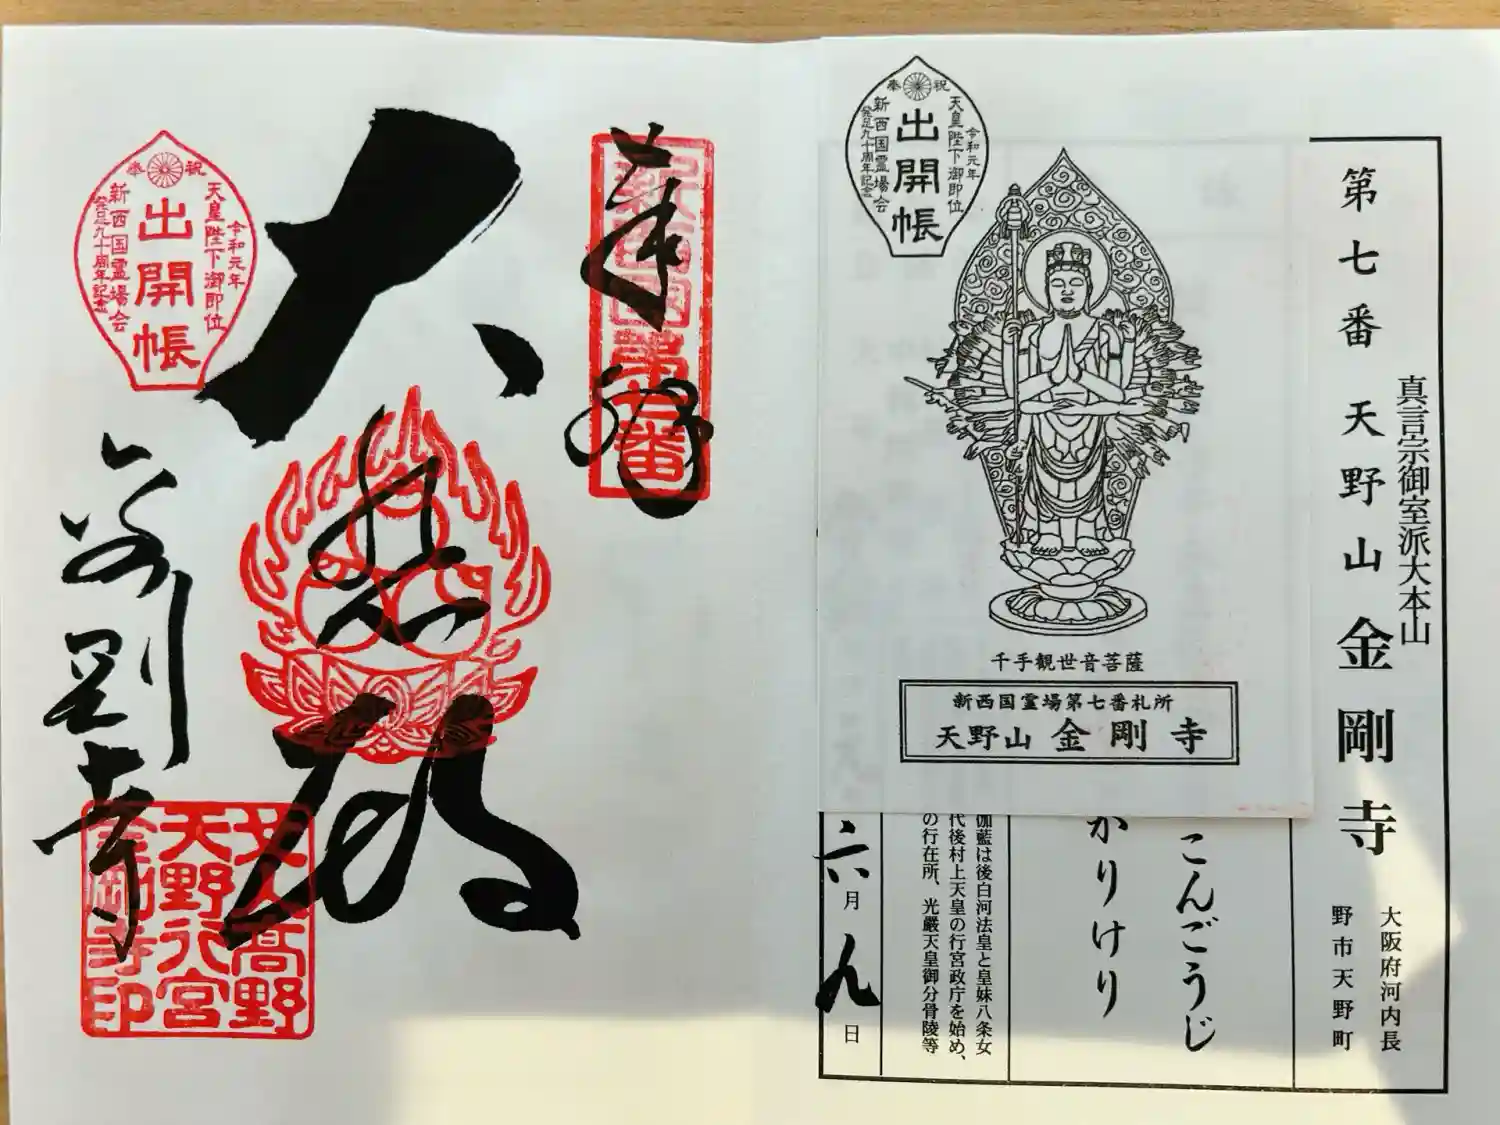 第七番 天野山 金剛寺
真言宗御室派大本山
大阪府河内長
野市天野町
こんごうじ
かりけり
伽藍は後白河法皇と皇妹八条女
代後村上天皇の行宮政庁を始め、
の行在所、光嚴天皇御分骨陵等
六月九日
奉祝
令和元年
天皇陛下御即位
出開帳
新西国霊場会
発足九十周年記念
千手観世音菩薩
新西国霊場第七番札所
天野山 金剛寺
奉拝
新西国第七番
大悲殿
奉祝
令和元年
天皇陛下御即位
出開帳
新西国霊場会
発足九十周年記念
金剛寺
女人高野
天野行宮
金剛寺印